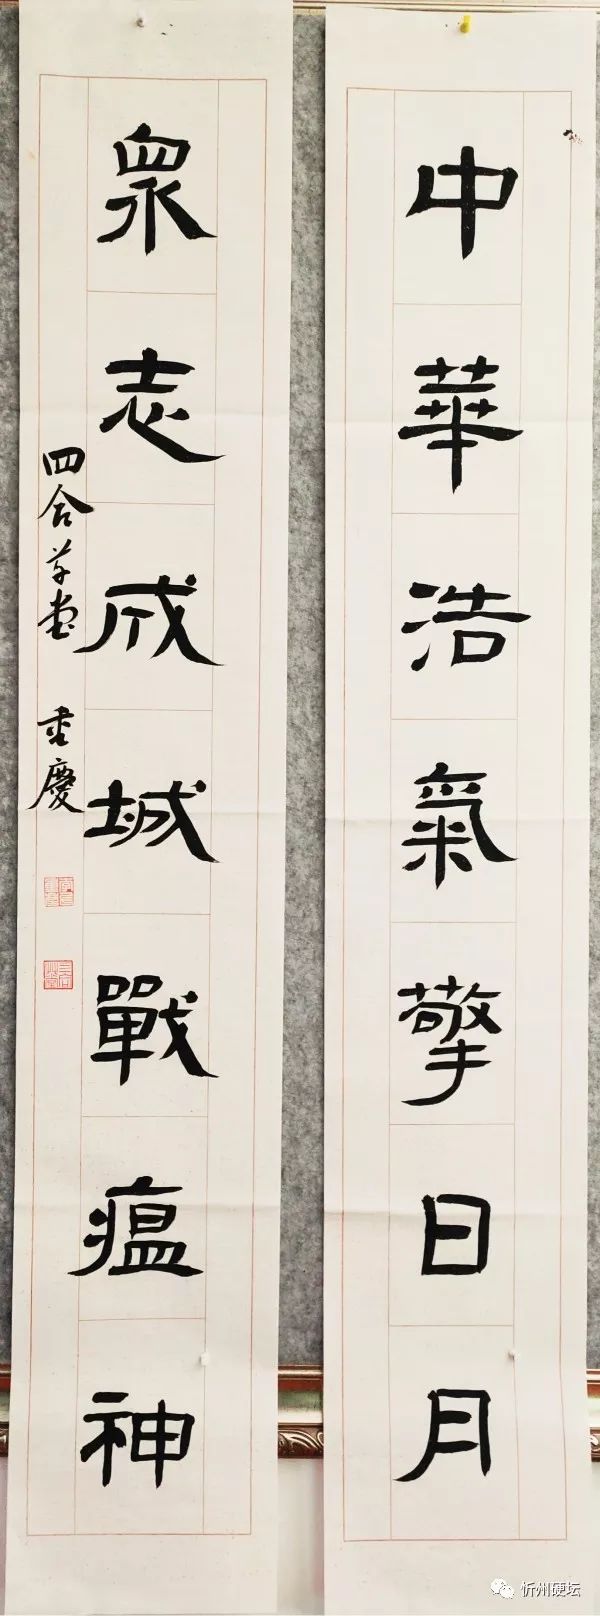 中華浩氣擎日月
眾志成城戰瘟神
四合草堂 重慶
忻州硬坛